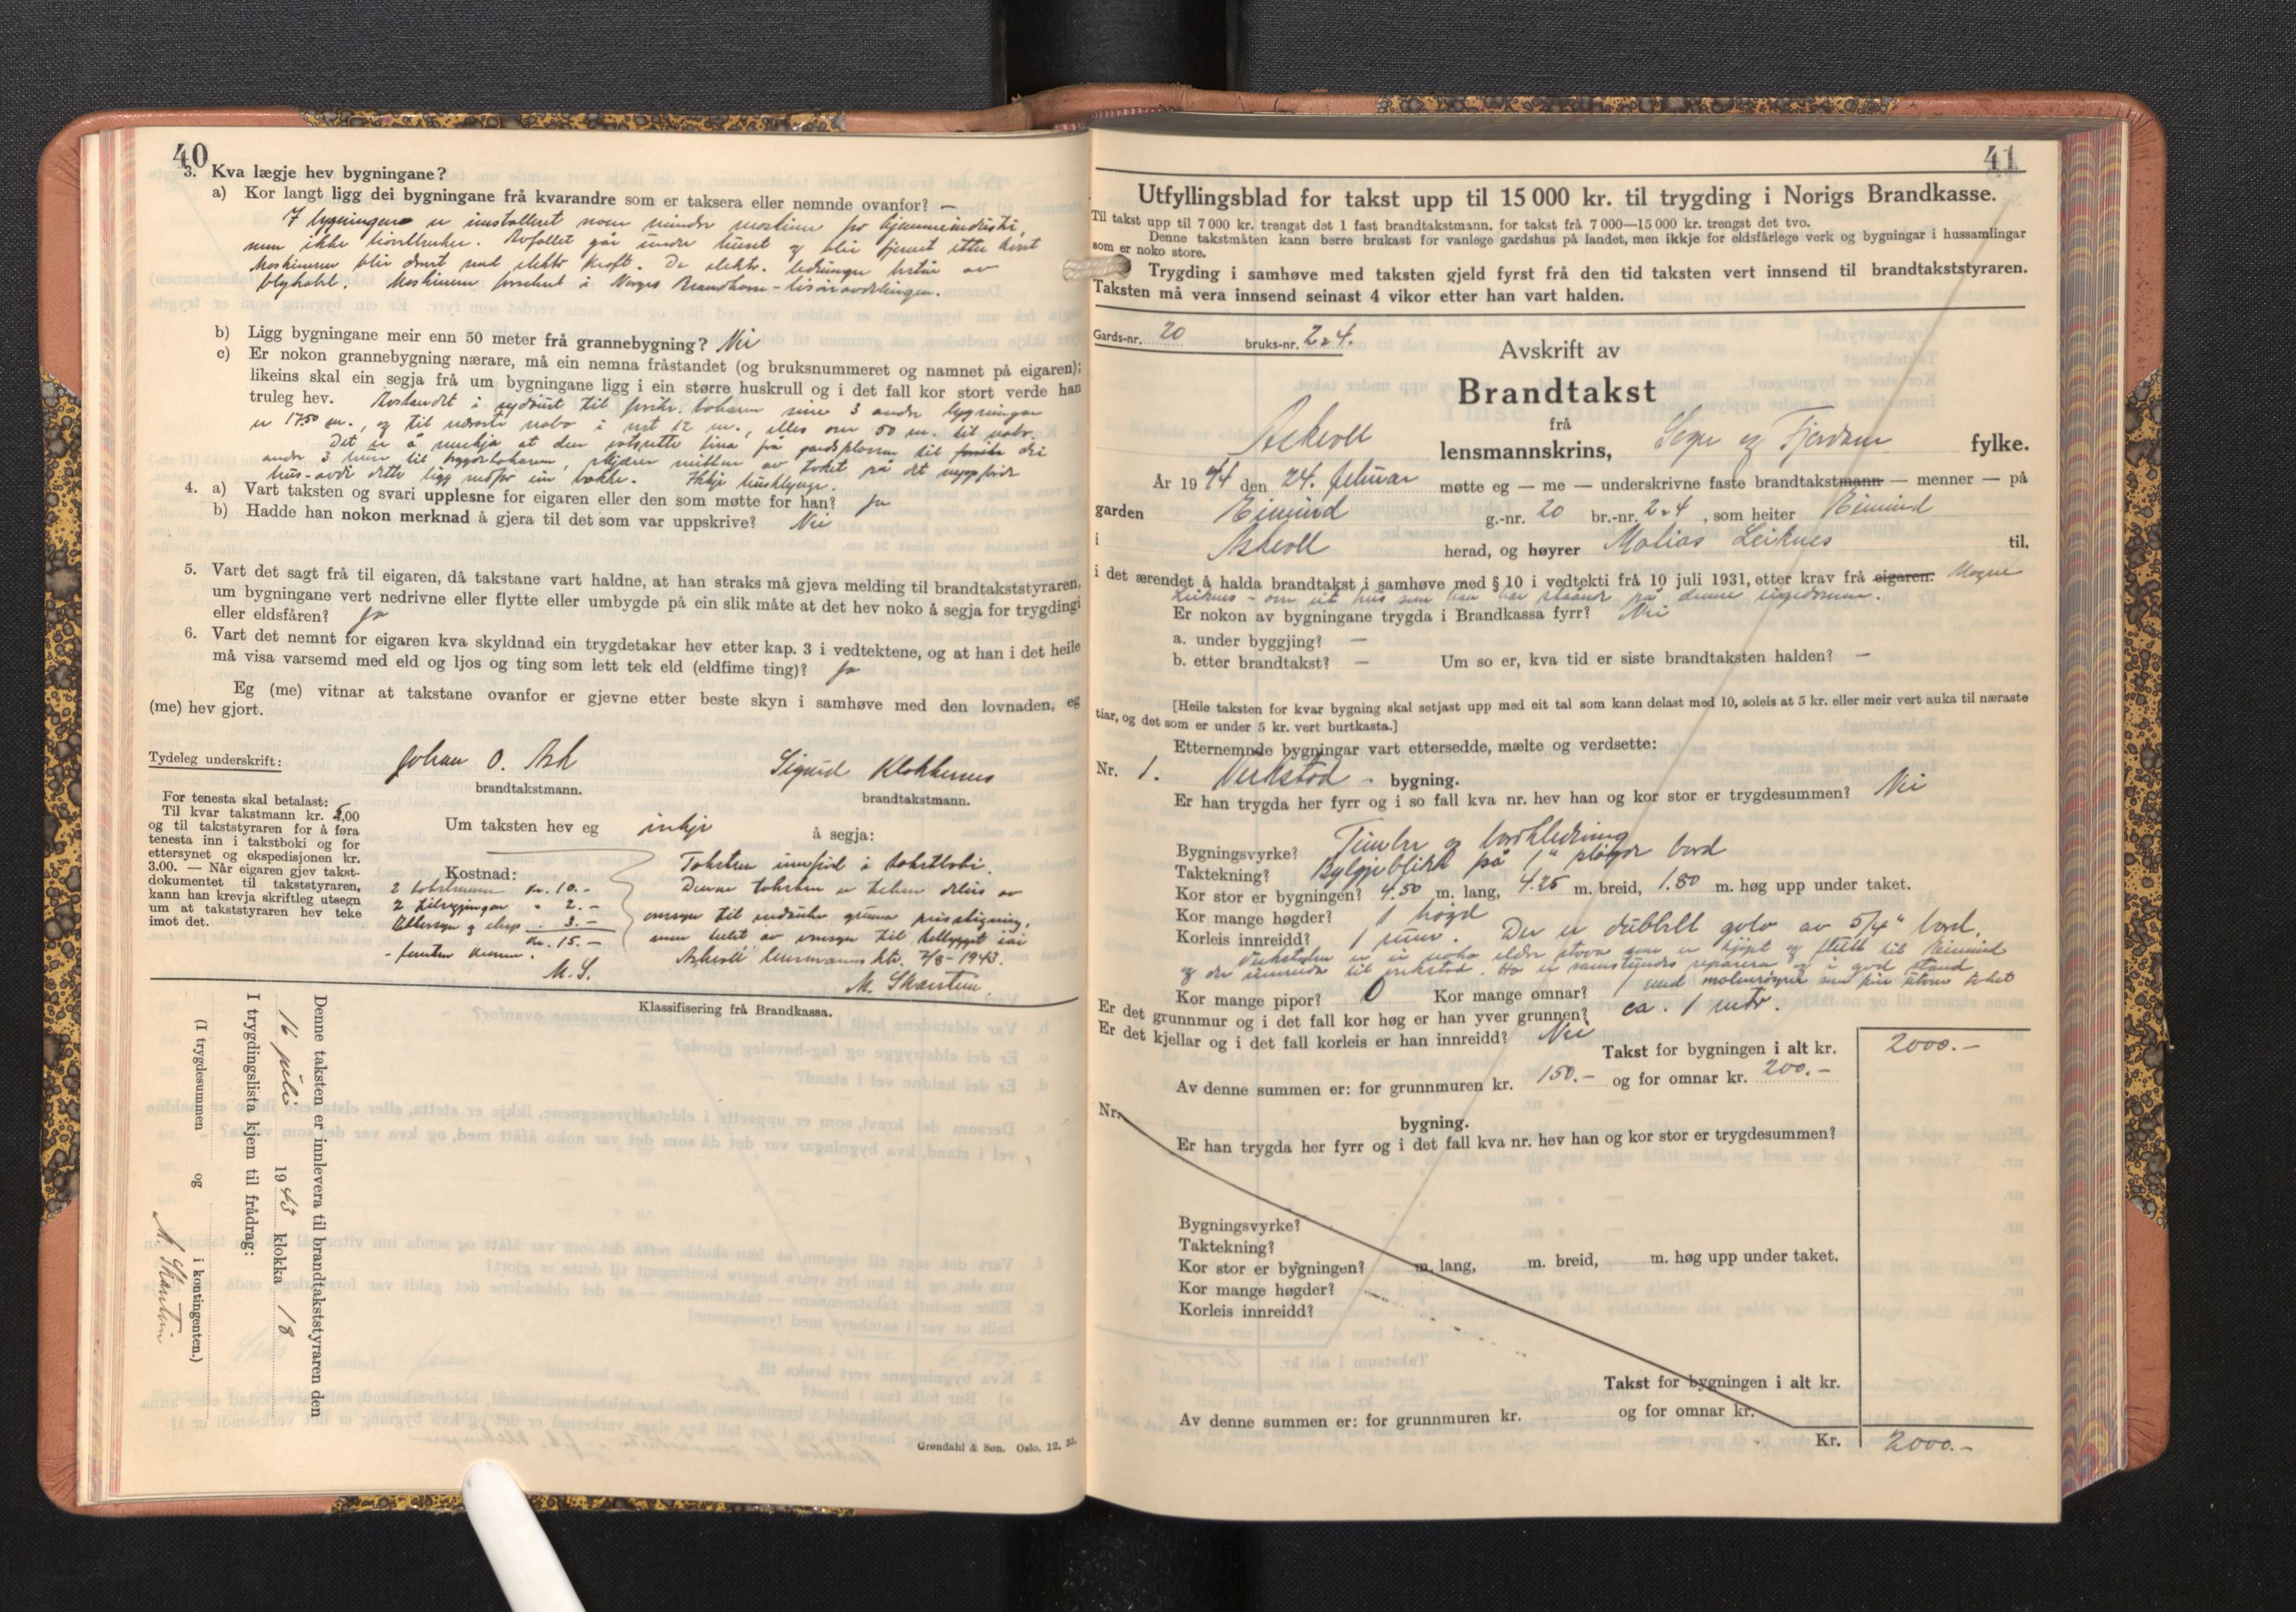 40
3. Kva lægje hev bygningane?
a) Kor langt ligg dei bygningane frå kvarandre som er taksera eller nemnde ovanfor? —
I bygningane er installeret noen mindre maskiner for hjemmeindustri,
men ikke Avfallet går under huset og blir fjernet etter hvert
Maskinene blir drevet med elektr. kraft. De elektr. ledninger består av
blykabel. Maskinene forsikret i Norges Brandkasse - avdelingen.
b) Ligg bygningane meir enn 50 meter frå grannebygning? Nei
c) Er nokon grannebygning nærare, må ein nemna fråstandet (og bruksnummeret og namnet på eigaren);
likeins skal ein segja frå um bygningane ligg i ein større huskrull og i det fall kor stort verde han
truleg hev. Avstandet i sydaust til sine 3 andre bygningar
er 17.50 m., og til næraste nabo i vest 12 m., elles over 50 m. til nabo.
Det er å merkja at den lina frå gardsplassen til dei
andre 3 hus til , skjærer midten av taket på det uppførde
hus - avdi dette ligg nedfor ein bakke. Ikkje husklynge.
4. a) Vart taksten og svari upplesne for eigaren eller den som møtte for han? Ja
b) Hadde han nokon merknad å gjera til det som var uppskrive? Nei
5. Vart det sagt frå til eigaren, då takstane vart haldne, at han straks må gjeva melding til brandtakststyraren,
um bygningane vert nedrivne eller flytte eller umbygde på ein slik måte at det hev noko å segja for trygdingi
eller eldsfåren? Ja
6. Vart det nemnt for eigaren kva skyldnad ein trygdetakar hev etter kap. 3 i vedtektene, og at han i det heile
må visa varsemd med eld og ljos og ting som lett tek eld (eldfime ting)? Ja
Eg (me) vitnar at takstane ovanfor er gjevne etter beste skyn i samhøve med den lovnaden, eg
(me) hev gjort.
Tydeleg underskrift: Johan O. Ask Sigurd Klokkernes
brandtakstmann. brandtakstmann.
For tenesta skal betalast:
Til kvar takstmann kr. 5,00
og til takststyraren for å føra
tenesta inn i takstboki og for
ettersynet og ekspedisjonen kr.
3.00. — Når eigaren gjev takst-
dokumentet til takststyraren,
kann han krevja skriftleg utsegn
um at takststyraren hev teke
imot det.
Um taksten hev eg inkje å segja:
Kostnad:
2 takstmenn kr. 10.-
2 tilsegjingar " 2.-
Ettersyn og eksp. " 3.-
Kr. 15.-
- femten kroner.
M. S.
Taksten innførd i takstboki.
Denne taksten er
omsyn til grunna prisstigning,
men av omsyn til
Askvoll lensmannsktr. 7/8-1943.
M. Skarstein.
Klassifisering frå Brandkassa.
Denne taksten er innlevera til brandtakststyraren den
16 juli 1943 klokka 18
I trygdingslista kjem til frådrag:
(I trygdesummen og i kontingenten.)
M. Skarstein
Grøndahl & Søn. Oslo. 12.
41
Utfyllingsblad for takst upp til 15 000 kr. til trygding i Norigs Brandkasse.
Til takst upp til 7 000 kr. trengst det 1 fast brandtakstmann, for takst frå 7 000—15 000 kr. trengst det tvo.
Denne takstmåten kann berre brukast for vanlege gardshus på landet, men ikkje for eldsfårlege verk og bygningar i hussamlingar
som er noko store.
Trygding i samhøve med taksten gjeld fyrst frå den tid taksten vert innsend til brandtakststyraren.
Taksten må vera innsend seinast 4 vikor etter han vart halden.
Gards-nr. 20 bruks-nr. 2 & 4.
Avskrift av
Brandtakst
frå
Askvoll lensmannskrins, Sogn og Fjordane fylke.
År 1944 den 24. februar møtte eg — me — underskrivne faste brandtakstmann — menner — på
garden Eimind g.-nr. 20 br.-nr. 2 & 4, som heiter Eimind
i Askvoll herad, og høyrer Matias Leiknes til,
i det ærendet å halda brandtakst i samhøve med § 10 i vedtekti frå 10 juli 1931, etter krav frå eigaren. Magne
Leiknes - om eit hus som han har ståande på denne eigedomen.
Er nokon av bygningane trygda i Brandkassa fyrr? Nei
a. under byggjing? —
b. etter brandtakst? — Um so er, kva tid er siste brandtaksten halden? —
[Heile taksten for kvar bygning skal setjast upp med eit tal som kann delast med 10, soleis at 5 kr. eller meir vert auka til næraste
tiar, og det som er under 5 kr. vert burtkasta.]
Etternemnde bygningar vart ettersedde, mælte og verdsette:
Nr. 1. Verkstad - bygning.
Er han trygda her fyrr og i so fall kva nr. hev han og kor stor er trygdesummen? Nei
Bygningsvyrke? Timber og bordkledning
Taktekning? Bylgjeblikk på 1" pløgde bord
Kor stor er bygningen? 4.50 m. lang, 4.25 m. breid, 1.80 m. høg upp under taket.
Kor mange høgder? 1 høgd
Korleis innreidd? 1 rum. Der er dubbelt golv av 5/4" bord.
Verkstaden er ei noko eldre stove som er kjøpt og flutt til Eimind
og der innreidd til verkstad. Ho er samstundes reparera og i god stand.
Kor mange pipor? 0 Kor mange omnar? 1 med
Er det grunnmur og i det fall kor høg er han yver grunnen? ca. 1 meter.
Er det kjellar og i det fall korleis er han innreidd? Nei
Takst for bygningen i alt kr. 2000.-
Av denne summen er: for grunnmuren kr. 150.- og for omnar kr. 200.-
Nr. bygning.
Er han trygda her fyrr og i det fall kva nr. hev han og kor stor er trygdesummen?
Bygningsvyrke?
Taktekning?
Kor stor er bygningen? m. lang, m. breid, m. høg upp under taket.
Kor mange høgder?
Korleis innreidd?
Takst for bygningen i alt kr.
Av denne summen er: for grunnmuren kr. og for omnar kr.
Kr. 2000.-